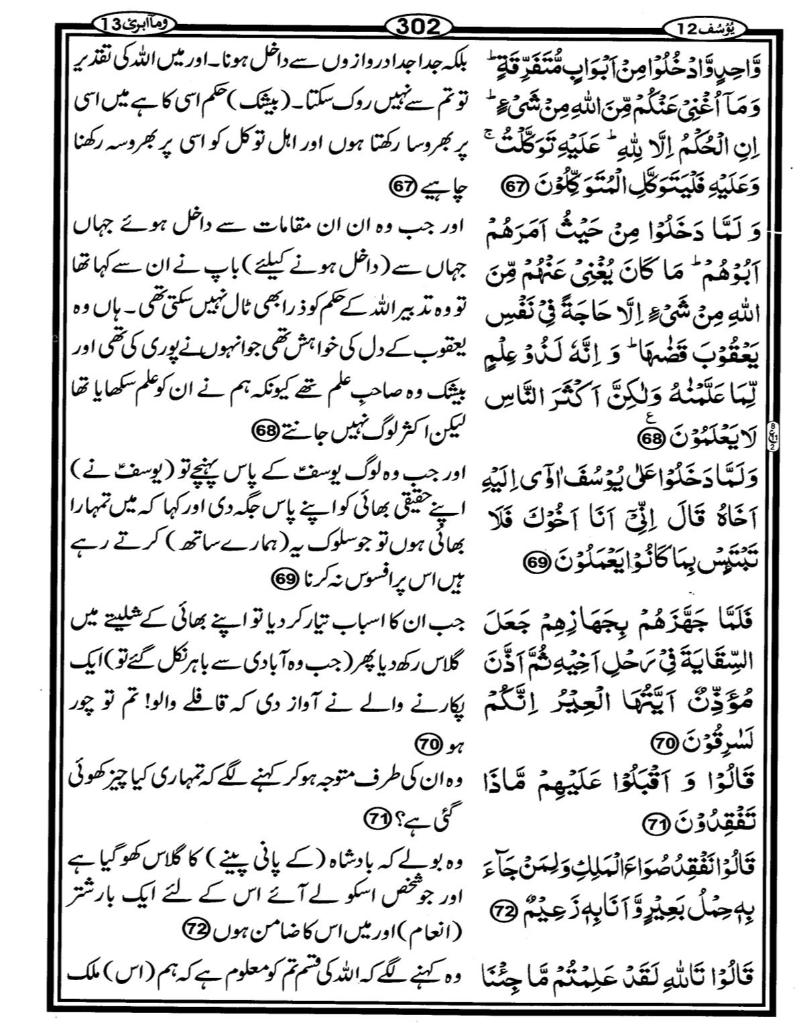 یُوْسُف 12
302
وَمَآ اُبَرِّئُ 13
وَّاحِدٍ وَّادْخُلُوْا مِنْ اَبْوَابٍ مُّتَفَرِّقَةٍ ؕ
وَمَاۤ اُغْنِیْ عَنْكُمْ مِّنَ اللهِ مِنْ شَیْءٍ ؕ
اِنِ الْحُكْمُ اِلَّا لِلّٰهِ ؕ عَلَیْهِ تَوَكَّلْتُ ۚ
وَعَلَیْهِ فَلْیَتَوَكَّلِ الْمُتَوَكِّلُوْنَ 67
وَ لَمَّا دَخَلُوْا مِنْ حَیْثُ اَمَرَهُمْ
اَبُوْهُمْ ؕ مَا كَانَ یُغْنِیْ عَنْهُمْ مِّنَ
اللهِ مِنْ شَیْءٍ اِلَّا حَاجَةً فِیْ نَفْسِ
یَعْقُوْبَ قَضٰىهَا ؕ وَ اِنَّهٗ لَذُوْ عِلْمٍ
لِّمَا عَلَّمْنٰهُ وَلٰكِنَّ اَكْثَرَ النَّاسِ
لَا یَعْلَمُوْنَ 68 ع
وَلَمَّا دَخَلُوْا عَلٰی یُوْسُفَ اٰوٰۤی اِلَیْهِ
اَخَاهُ قَالَ اِنِّیْۤ اَنَا اَخُوْكَ فَلَا
تَبْتَىِٕسْ بِمَا كَانُوْا یَعْمَلُوْنَ 69
فَلَمَّا جَهَّزَهُمْ بِجَهَازِهِمْ جَعَلَ
السِّقَایَةَ فِیْ رَحْلِ اَخِیْهِ ثُمَّ اَذَّنَ
مُؤَذِّنٌ اَیَّتُهَا الْعِیْرُ اِنَّكُمْ
لَسٰرِقُوْنَ 70
قَالُوْا وَ اَقْبَلُوْا عَلَیْهِمْ مَّاذَا
تَفْقِدُوْنَ 71
قَالُوْا نَفْقِدُ صُوَاعَ الْمَلِكِ وَلِمَنْ جَآءَ
بِهٖ حِمْلُ بَعِیْرٍ وَّاَنَا بِهٖ زَعِیْمٌ 72
قَالُوْا تَاللهِ لَقَدْ عَلِمْتُمْ مَّا جِئْنَا
بلکہ جدا جدا دروازوں سے داخل ہونا۔ اور میں اللہ کی تقدیر
تو تم سے نہیں روک سکتا۔ (بیشک) حکم اسی کا ہے میں اسی
پر بھروسا رکھتا ہوں اور اہل توکل کو اسی پر بھروسہ رکھنا
چاہیے 67
اور جب وہ ان ان مقامات سے داخل ہوئے جہاں
جہاں سے (داخل ہونے کیلئے) باپ نے ان سے کہا تھا
تو وہ تدبیر اللہ کے حکم کو ذرا بھی ٹال نہیں سکتی تھی۔ ہاں وہ
یعقوب کے دل کی خواہش تھی جو انہوں نے پوری کی تھی اور
بیشک وہ صاحبِ علم تھے کیونکہ ہم نے ان کو علم سکھایا تھا
لیکن اکثر لوگ نہیں جانتے 68
اور جب وہ لوگ یوسفؑ کے پاس پہنچے تو (یوسفؑ نے)
اپنے حقیقی بھائی کو اپنے پاس جگہ دی اور کہا کہ میں تمہارا
بھائی ہوں تو جو سلوک یہ (ہمارے ساتھ) کرتے رہے
ہیں اس پر افسوس نہ کرنا 69
جب ان کا اسباب تیار کر دیا تو اپنے بھائی کے شلیتے میں
گلاس رکھ دیا پھر (جب وہ آبادی سے باہر نکل گئے تو) ایک
پکارنے والے نے آواز دی کہ قافلے والو! تم تو چور
ہو 70
وہ ان کی طرف متوجہ ہو کر کہنے لگے کہ تمہاری کیا چیز کھوئی
گئی ہے؟ 71
وہ بولے کہ بادشاہ (کے پانی پینے) کا گلاس کھو گیا ہے
اور جو شخص اسکو لے آئے اس کے لئے ایک بار شتر
(انعام) اور میں اس کا ضامن ہوں 72
وہ کہنے لگے کہ اللہ کی قسم تم کو معلوم ہے کہ ہم (اس) ملک